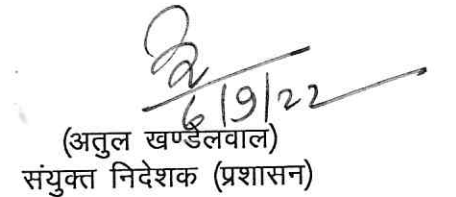 6/9/22
(अतुल खण्डेलवाल)
संयुक्त निदेशक (प्रशासन)